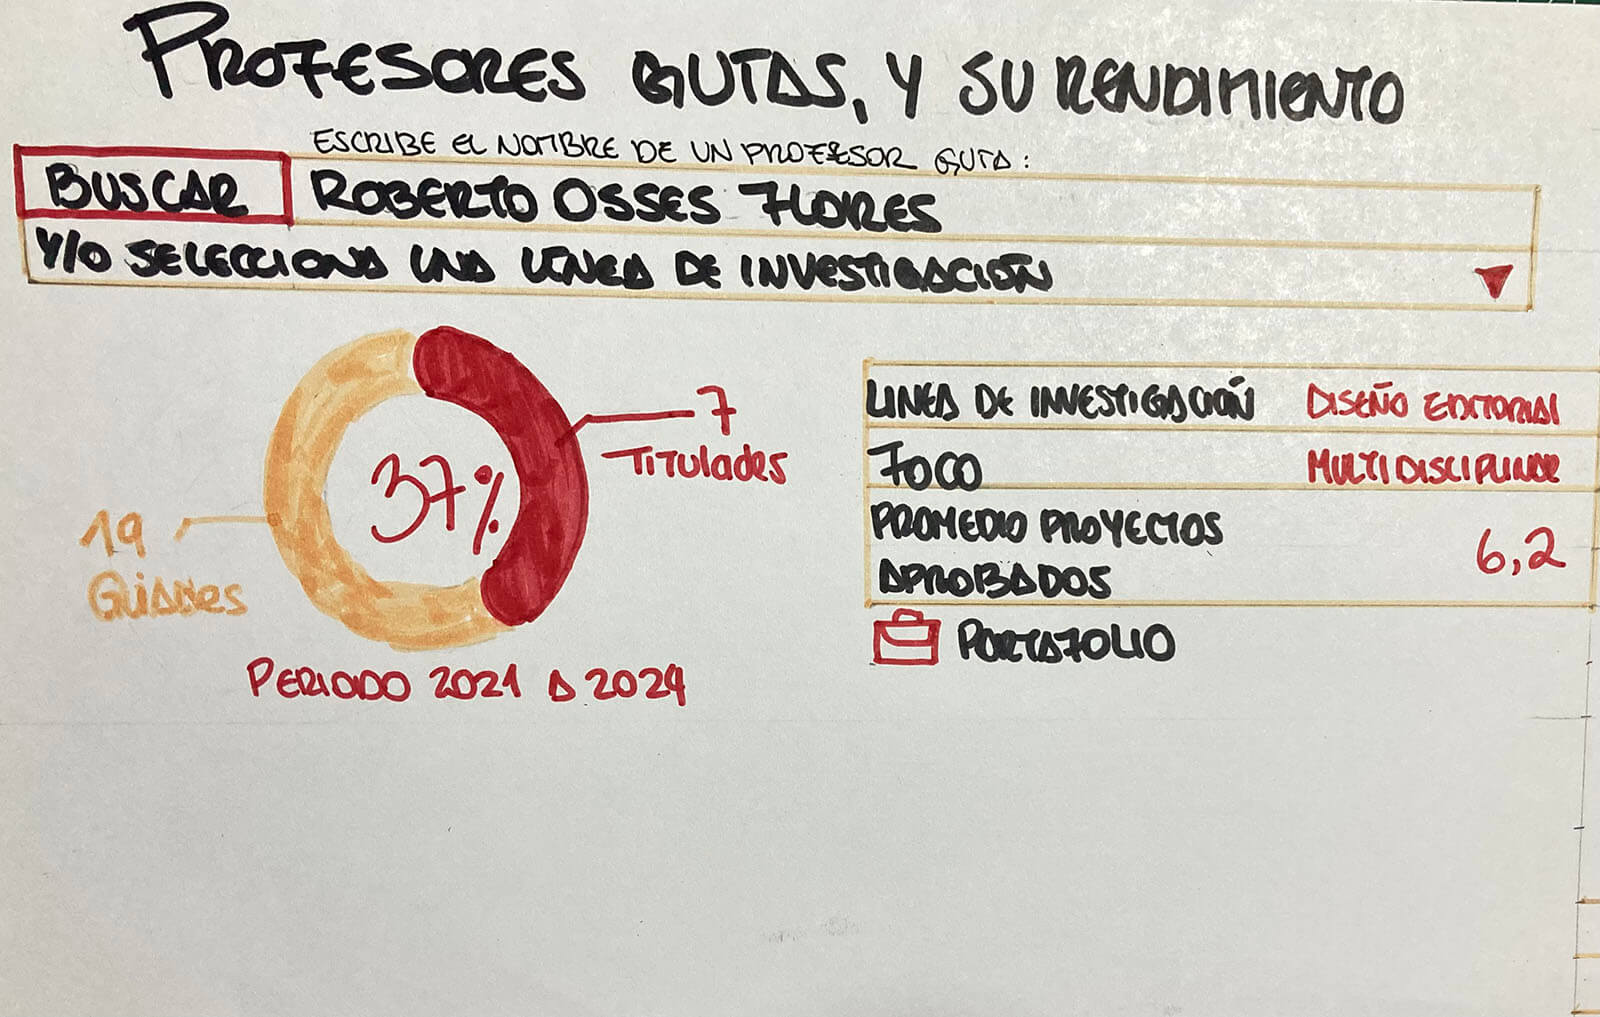 PROFESORES GUÍAS, Y SU RENDIMIENTO
ESCRIBE EL NOMBRE DE UN PROFESOR GUÍA:
BUSCAR ROBERTO OSSES FLORES
Y/O SELECCIONA UNA LÍNEA DE INVESTIGACIÓN
7
TITULADES
37%
19
GUIADES
PERIODO 2021 A 2024
LINEA DE INVESTIGACIÓN DISEÑO EDITORIAL
FOCO MULTIDISCIPLINAR
PROMEDIO PROYECTOS
APROBADOS 6,2
PORTAFOLIO